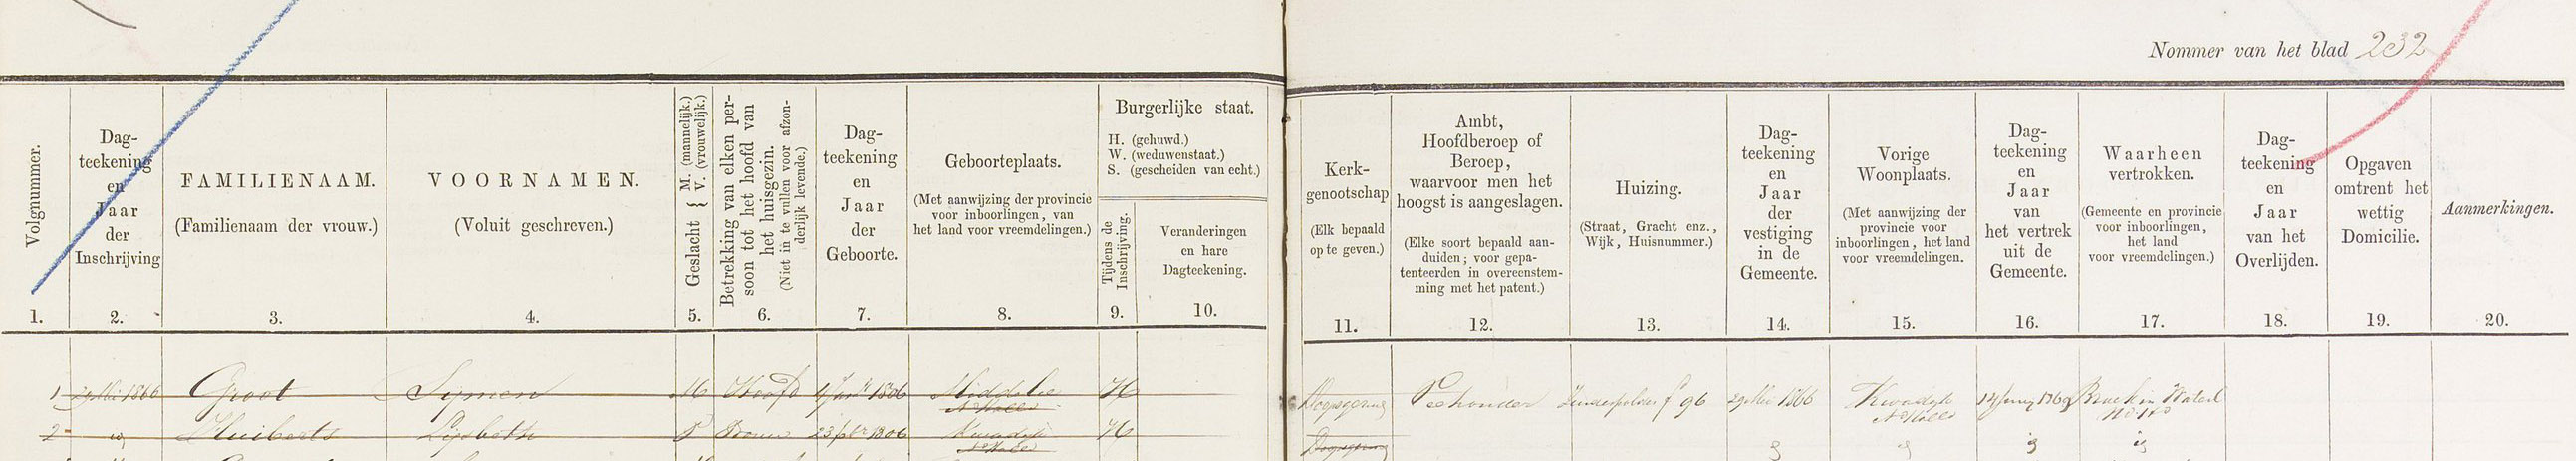 Nommer van het blad 232
Volgnummer.
1.
Dag-
teekening
en
Jaar
der
Inschrijving
2.
FAMILIENAAM.
(Familienaam der vrouw.)
3.
VOORNAMEN.
(Voluit geschreven.)
4.
Geslacht { M. (mannelijk.)
V. (vrouwelijk.)
5.
Betrekking van elken per-
soon tot het hoofd van
het huisgezin.
(Niet in te vullen voor afzon-
derlijk levende.)
6.
Dag-
teekening
en
Jaar
der
Geboorte.
7.
Geboorteplaats.
(Met aanwijzing der provincie
voor inboorlingen, van
het land voor vreemdelingen.)
8.
Burgerlijke staat.
H. (gehuwd.)
W. (weduwenstaat.)
S. (gescheiden van echt.)
Tijdens de
Inschrijving.
9.
Veranderingen
en hare
Dagteekening.
10.
Kerk-
genootschap
(Elk bepaald
op te geven.)
11.
Ambt,
Hoofdberoep of
Beroep,
waarvoor men het
hoogst is aangeslagen.
(Elke soort bepaald aan-
duiden; voor gepa-
tenteerden in overeenstem-
ming met het patent.)
12.
Huizing.
(Straat, Gracht enz.,
Wijk, Huisnummer.)
13.
Dag-
teekening
en
Jaar
der
vestiging
in de
Gemeente.
14.
Vorige
Woonplaats.
(Met aanwijzing der
provincie voor
inboorlingen, het land
voor vreemdelingen.
15.
Dag-
teekening
en
Jaar
van
het vertrek
uit de
Gemeente.
16.
Waarheen
vertrokken.
(Gemeente en provincie
voor inboorlingen,
het land
voor vreemdelingen.)
17.
Dag-
teekening
en
Jaar
van het
Overlijden.
18.
Opgaven
omtrent het
wettig
Domicilie.
19.
Aanmerkingen.
20.
1 29 Mei 1866 Groot Sijmen M Hoofd 1806 Middelie H Doopsgezind Veehouder f 96 29 Mei 1866 Kwadijk Broek in Waterl
N Holld N Holld N Holld
2 id Huiberts Lijsbeth V Vrouw 23 1806 Kwadijk H Doopsgezind id id id id
N Holld